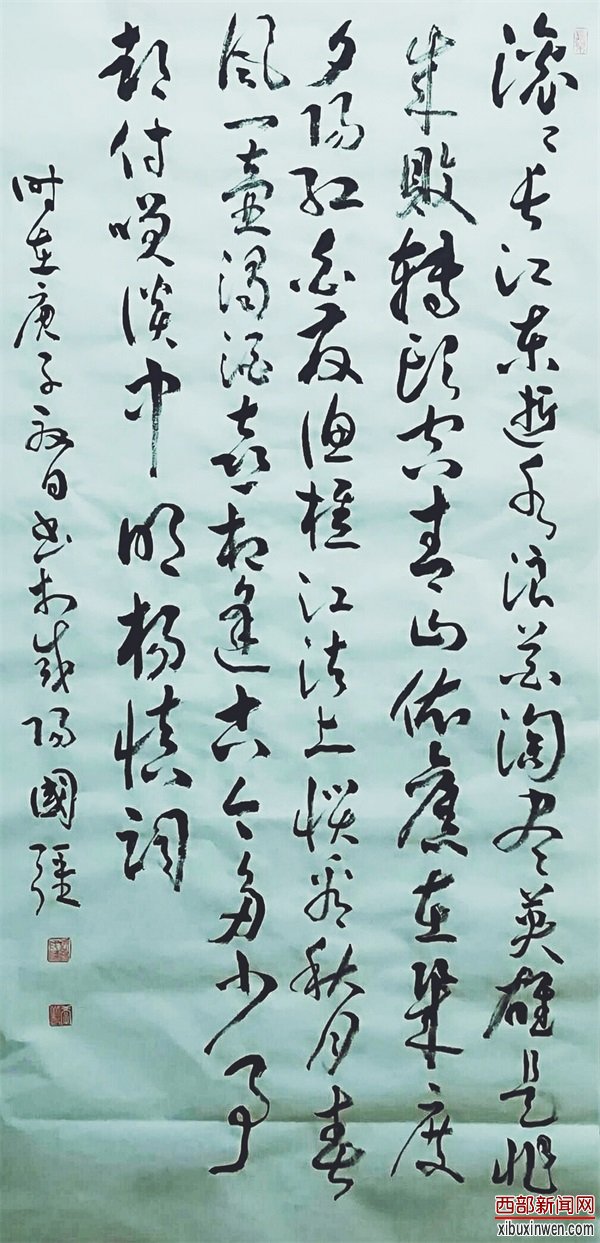 滚滚长江东逝水浪花淘尽英雄是非
成败转头空青山依旧在几度
夕阳红白发渔樵江渚上惯看秋月春
风一壶浊酒喜相逢古今多少事
都付笑谈中明杨慎词
时在庚子日书于咸阳國强
西部新闻网
xibuxinwen.com